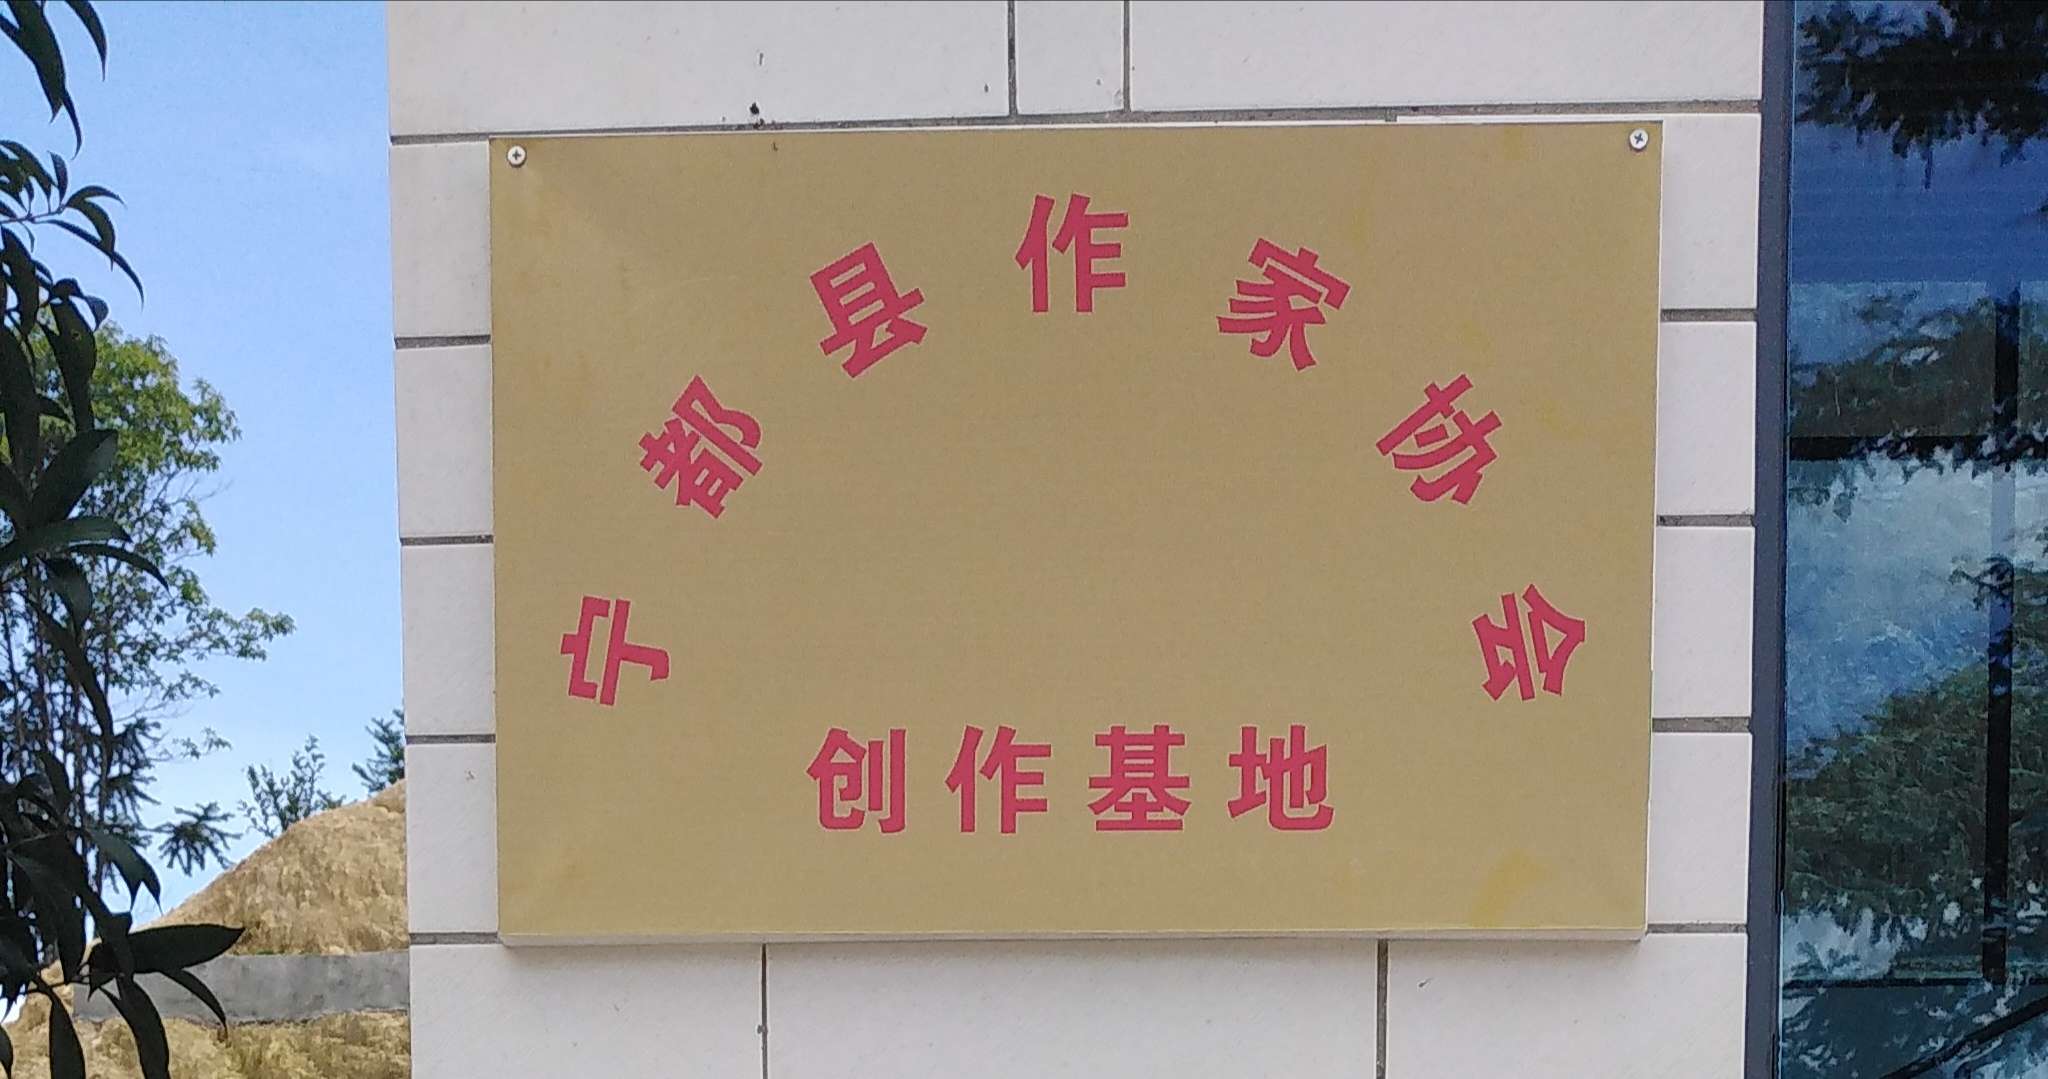 宁都县作家协会
创作基地